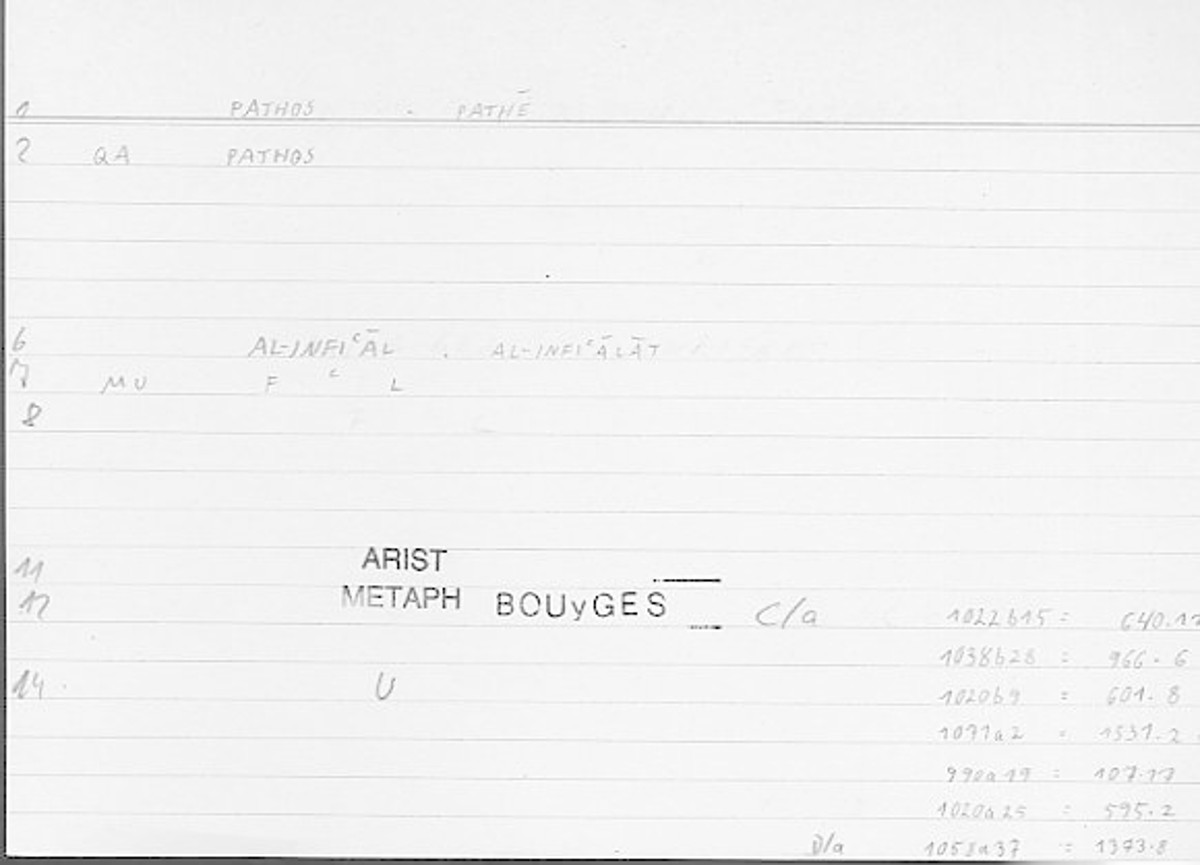 1 PATHOS . PATHĒ
2 QA PATHOS
6 AL-INFIᶜĀL . AL-INFIᶜĀLĀT
7 MU F ᶜ L
8
11 ARIST
12 METAPH BOUyGES C/a 1022b15 = 640.12
1038b28 = 966.6
14 U 1020b9 = 601.8
1071a2 = 1531.2
990a19 = 107.17
1020a25 = 595.2
D/a 1058a37 = 1373.8